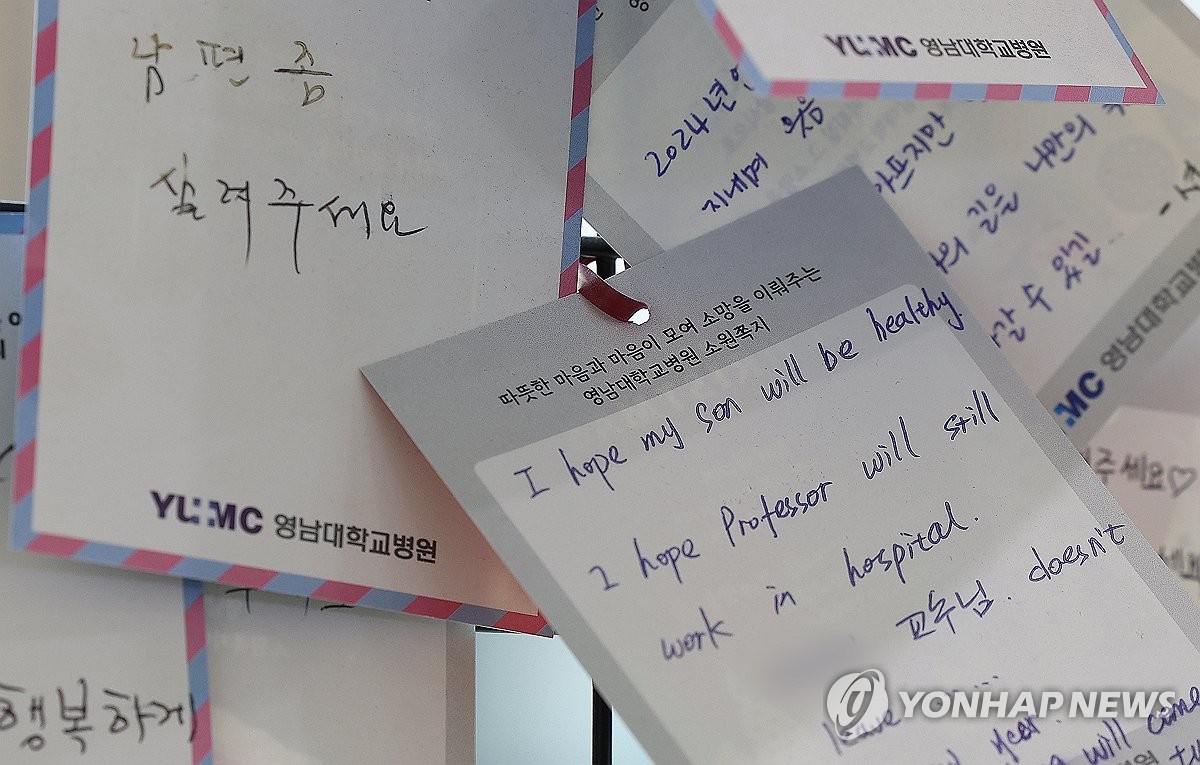 남편 좀
살려주세요
YUMC 영남대학교병원
YUMC 영남대학교병원
2024년
지내며 웃음
아프지만
나만의
길을
갈 수 있길...
MC 영남대학교병
주세요♡
따뜻한 마음과 마음이 모여 소망을 이뤄주는
영남대학교병원 소원쪽지
I hope my son will be healthy.
I hope Professor will still
work in hospital.
교수님. doesn't
leave
will come
행복하게
YONHAP NEWS